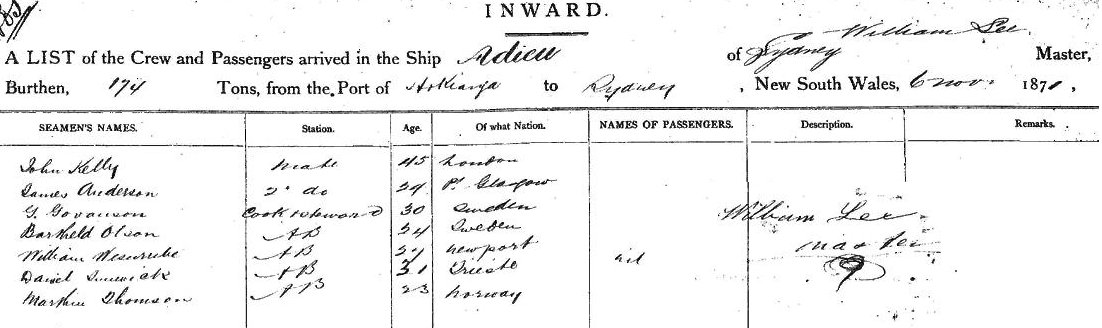 INWARD.
William Lee
A LIST of the Crew and Passengers arrived in the Ship Adieu of Sydney Master,
Burthen, 174 Tons, from the Port of Hokianga to Sydney, New South Wales, 6 Nov. 1871,
SEAMEN'S NAMES. Station. Age. Of what Nation. NAMES OF PASSENGERS. Description. Remarks.
John Kelly Mate 45 London
James Anderson 2 do 29 Pt Glasgow
Cook & Steward 30 Sweden William Lee
Olson AB 24 Sweden
William AB Newport nil Master
Daniel AB 31 Trieste
Thomson AB 23 Norway